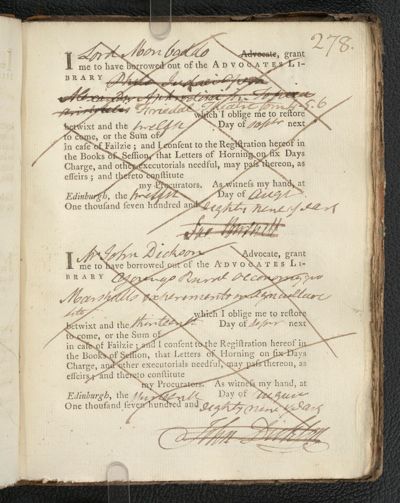 278.
I Lord Monboddo Advocate, grant
me to have borrowed out of the ADVOCATES LI-
BRARY
Alexandri Aphrodisii in Topica
Aristotelis tom. 4. 5. 6
which I oblige me to restore
betwixt and the twelfth Day of next
to come, or the Sum of
in case of Failzie; and I consent to the Registration hereof in
the Books of Session, that Letters of Horning on six Days
Charge, and other executorials needful, may pass thereon, as
effeirs; and thereto constitute
my Procurators. As witness my hand, at
Edinburgh, the twelfth Day of Augt
One thousand seven hundred and eighty nine years
I Mr John Dickson Advocate, grant
me to have borrowed out of the ADVOCATES LI-
BRARY Youngs Rural Oeconomy, 8vo
Marshalls experiments on agriculture
which I oblige me to restore
betwixt and the thirteenth Day of next
to come, or the Sum of
in case of Failzie; and I consent to the Registration hereof in
the Books of Session, that Letters of Horning on six Days
Charge, and other executorials needful, may pass thereon, as
effeirs; and thereto constitute
my Procurators. As witness my hand, at
Edinburgh, the thirteenth Day of August
One thousand seven hundred and eighty nine years
John Dickson